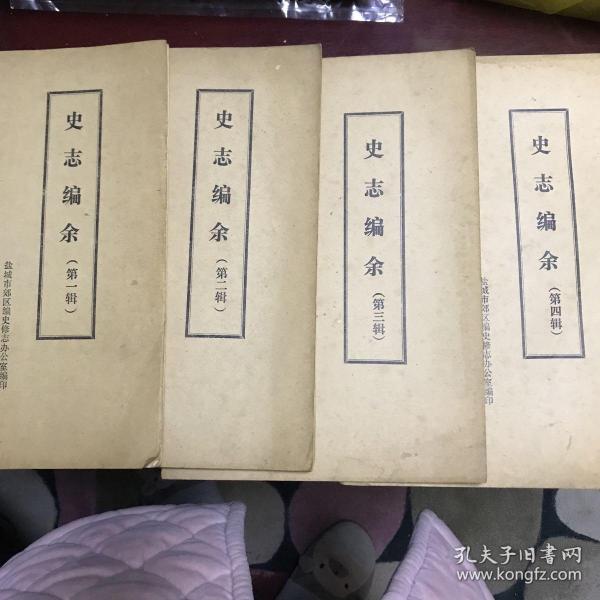 史志编余
(第一辑)
盐城市郊区编史修志办公室编印
史志编余
(第二辑)
史志编余
(第三辑)
史志编余
(第四辑)
盐城市郊区编史修志办公室编印
孔夫子旧书网
www.kongfz.com